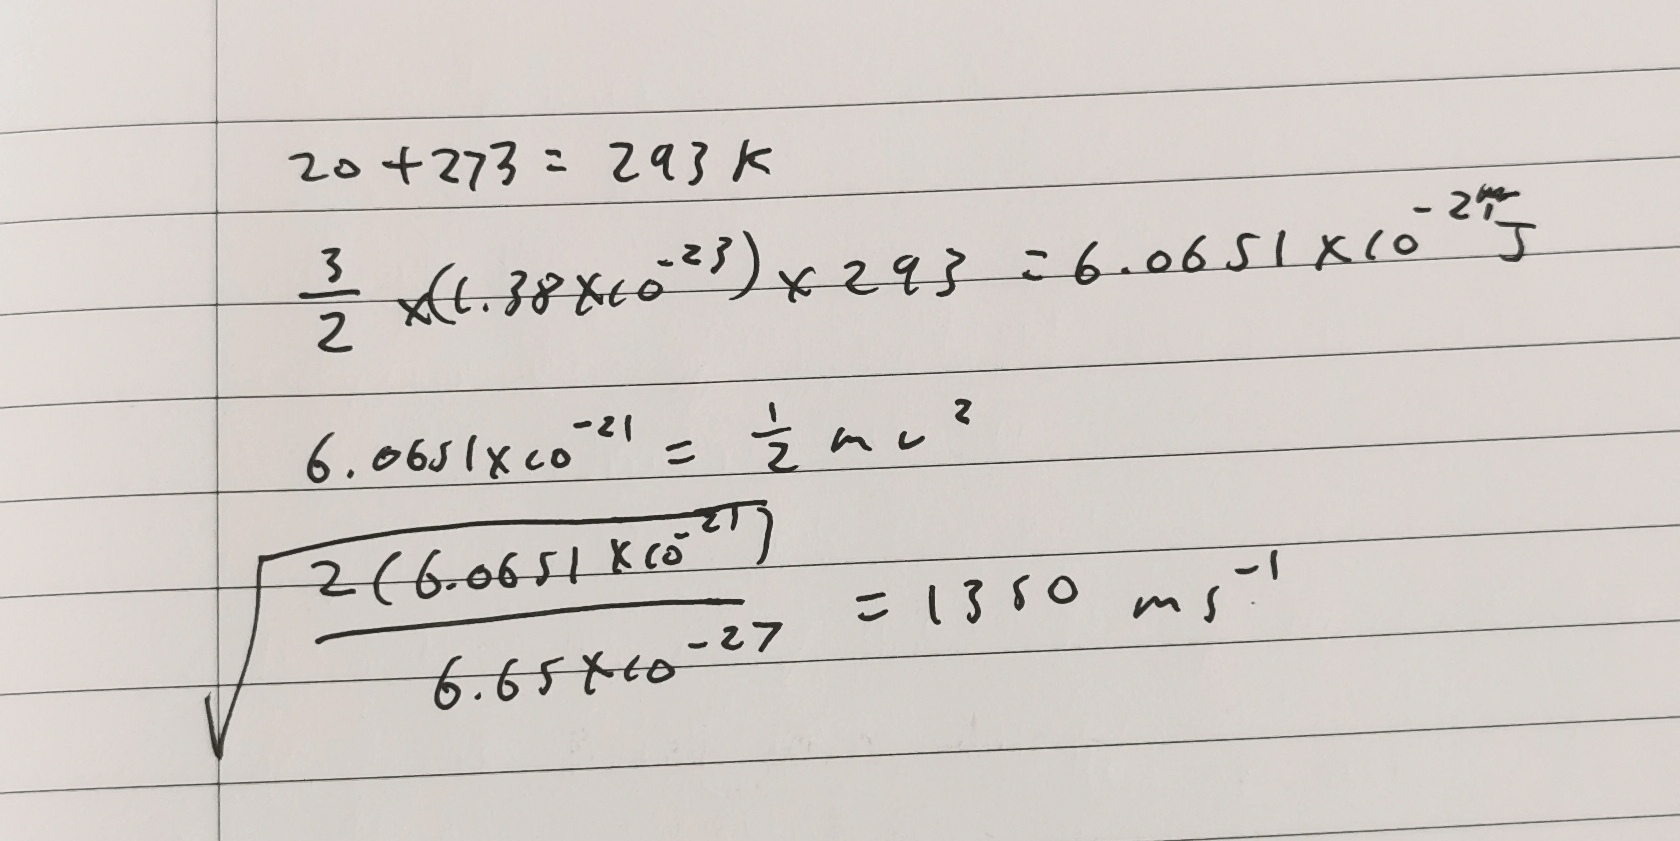 20 + 273 = 293 K
3/2 × (1.38 × 10^-23) × 293 = 6.0651 × 10^-21 J
6.0651 × 10^-21 = 1/2 m v^2
√(2(6.0651 × 10^-21) / 6.65 × 10^-27) = 1350 ms^-1